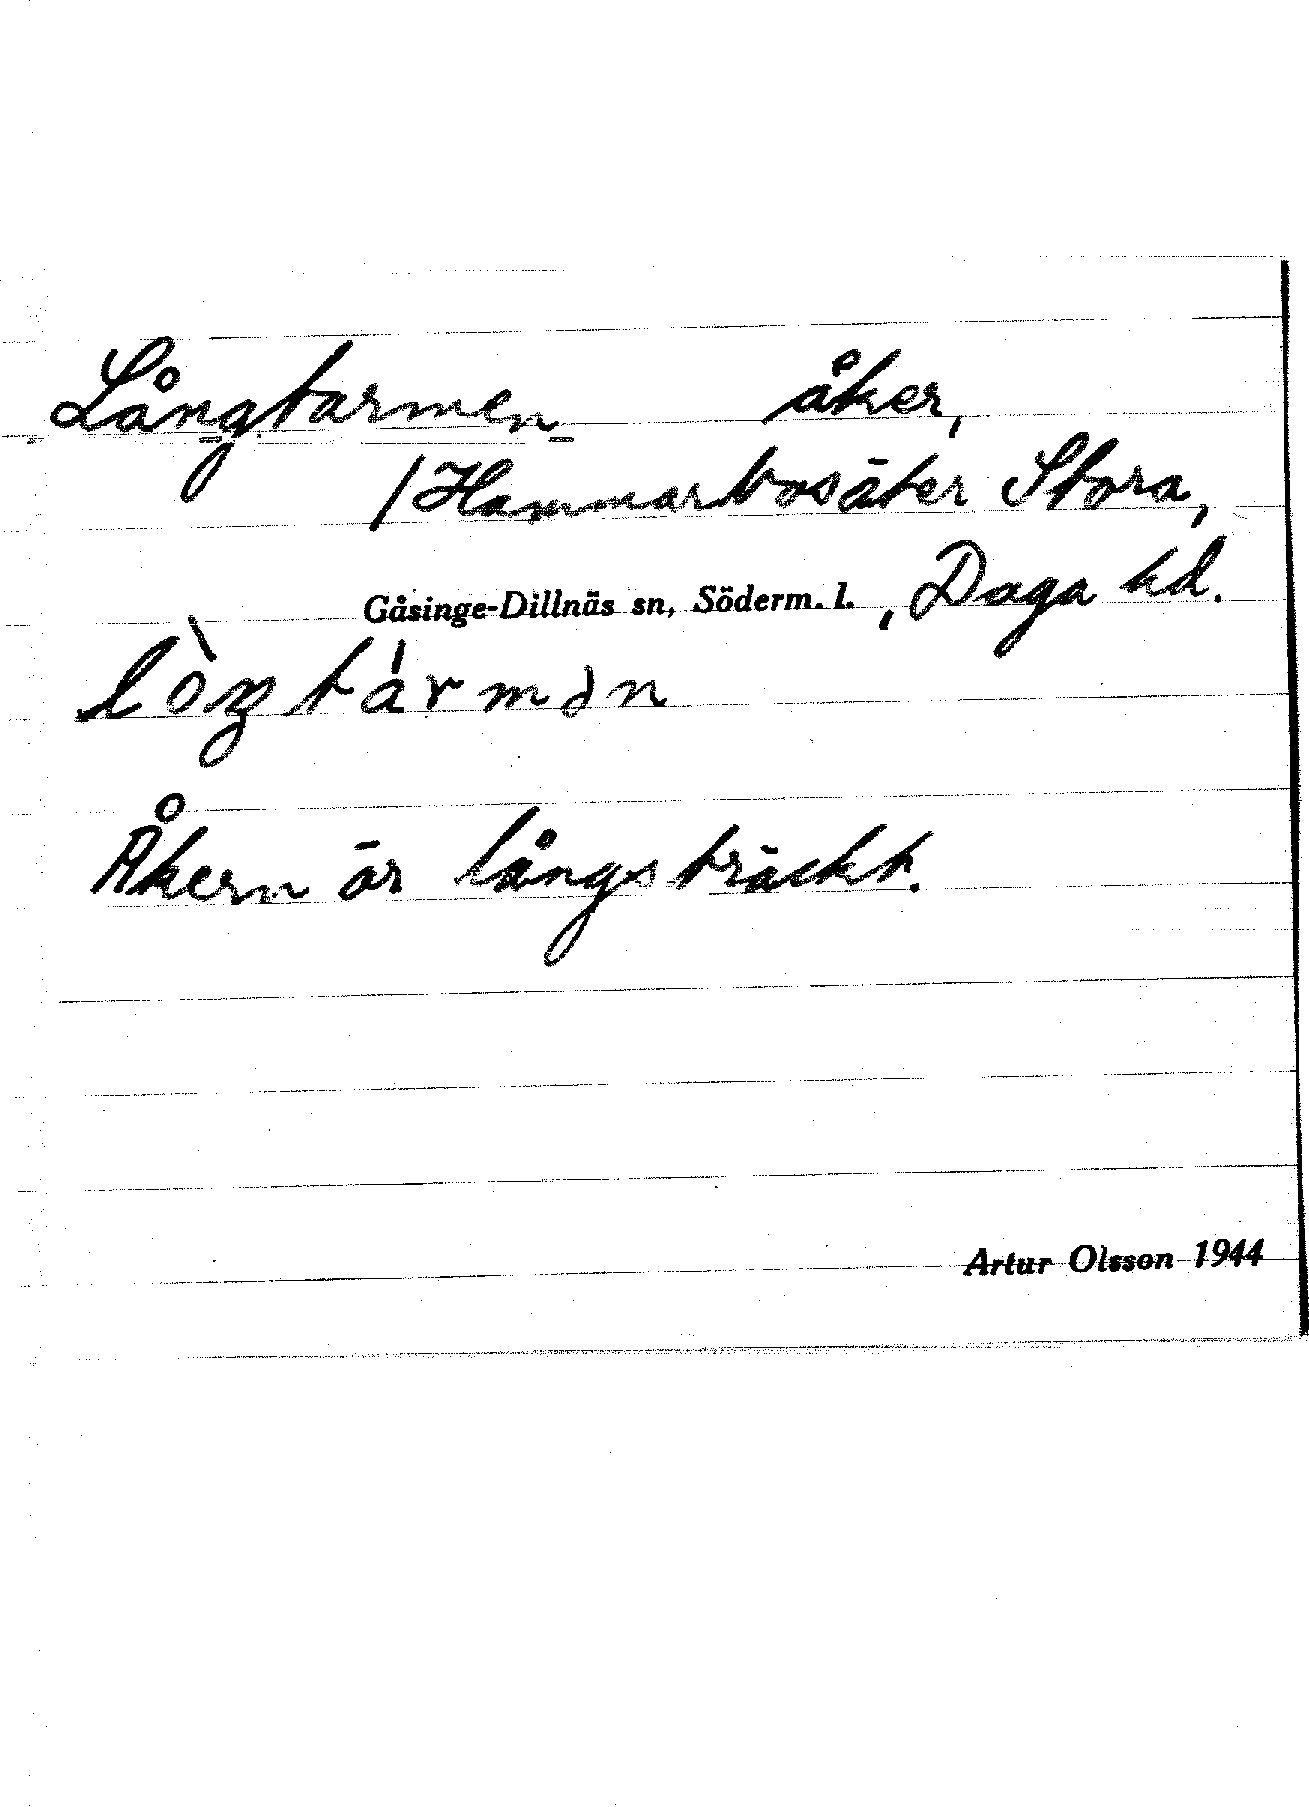 Långtarmen åker,
/Hammarbosäter Stora,
Gåsinge-Dillnäs sn, Söderm. l. , Daga hd.
lòŋtármən
Åkern är långsträckt.
Artur Olsson 1944